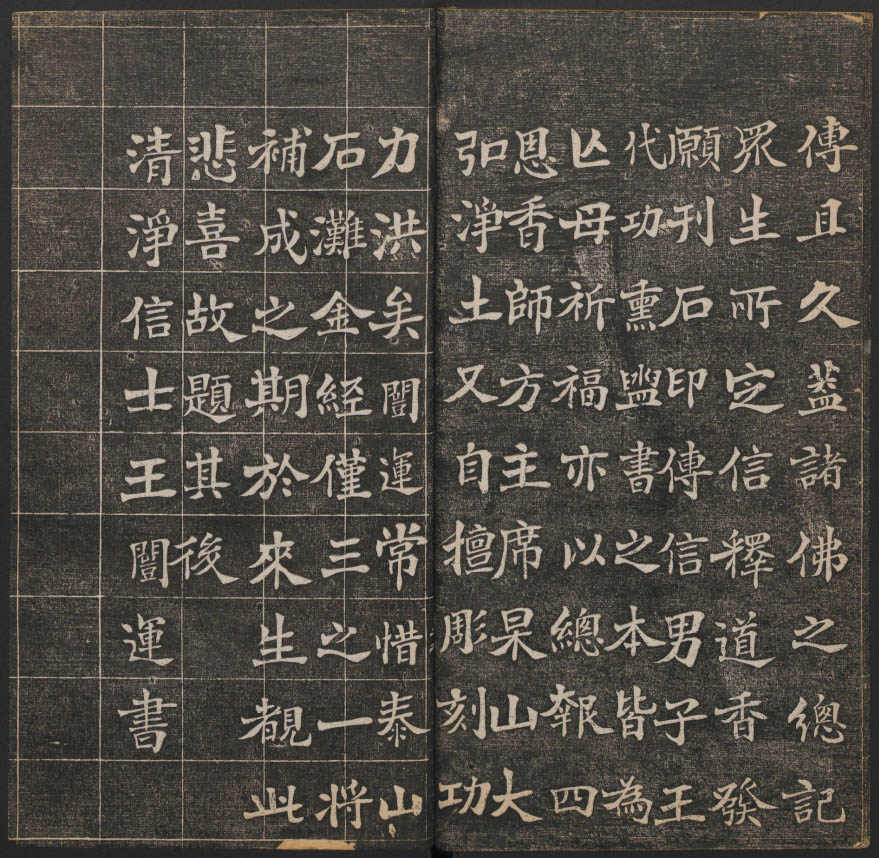 傳且久葢諸佛之總記
眾生所㝎信釋道香發
願刊石印傳信男子王
代功熏盥書之本皆為
亾母祈福亦以總報四
恩香師方主席杲山大
弘淨土又自擅彫刻功
力洪矣闓運常惜泰山
石灘金經僅三之一將
補成之期於來生覩此
悲喜故題其後
清淨信士王闓運書